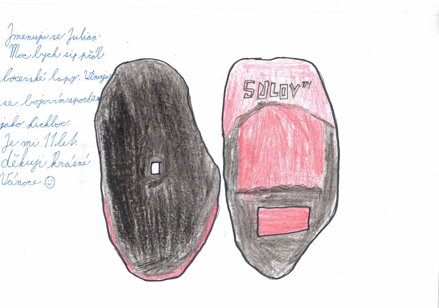 Jmenuji se Julian.
Moc bych sip přál
boxerské lapy. Věnuju
se bojovím sportem
jako kickbox.
Je mi 11 let.
děkuji krásné
Vánoce ☺
SULOV™